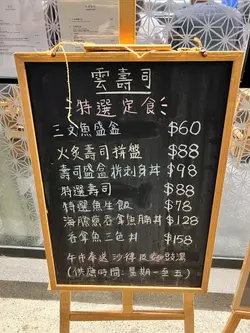 雲壽司
特選定食
三文魚盛盒 $60
火炙壽司拼盤 $88
壽司盛盒拼刺身丼 $98
特選壽司 $88
特選魚生飯 $78
海膽吞拿魚腩丼 $128
吞拿魚三色丼 $158
午市奉送沙律
湯
(供應時間:星期一至五)